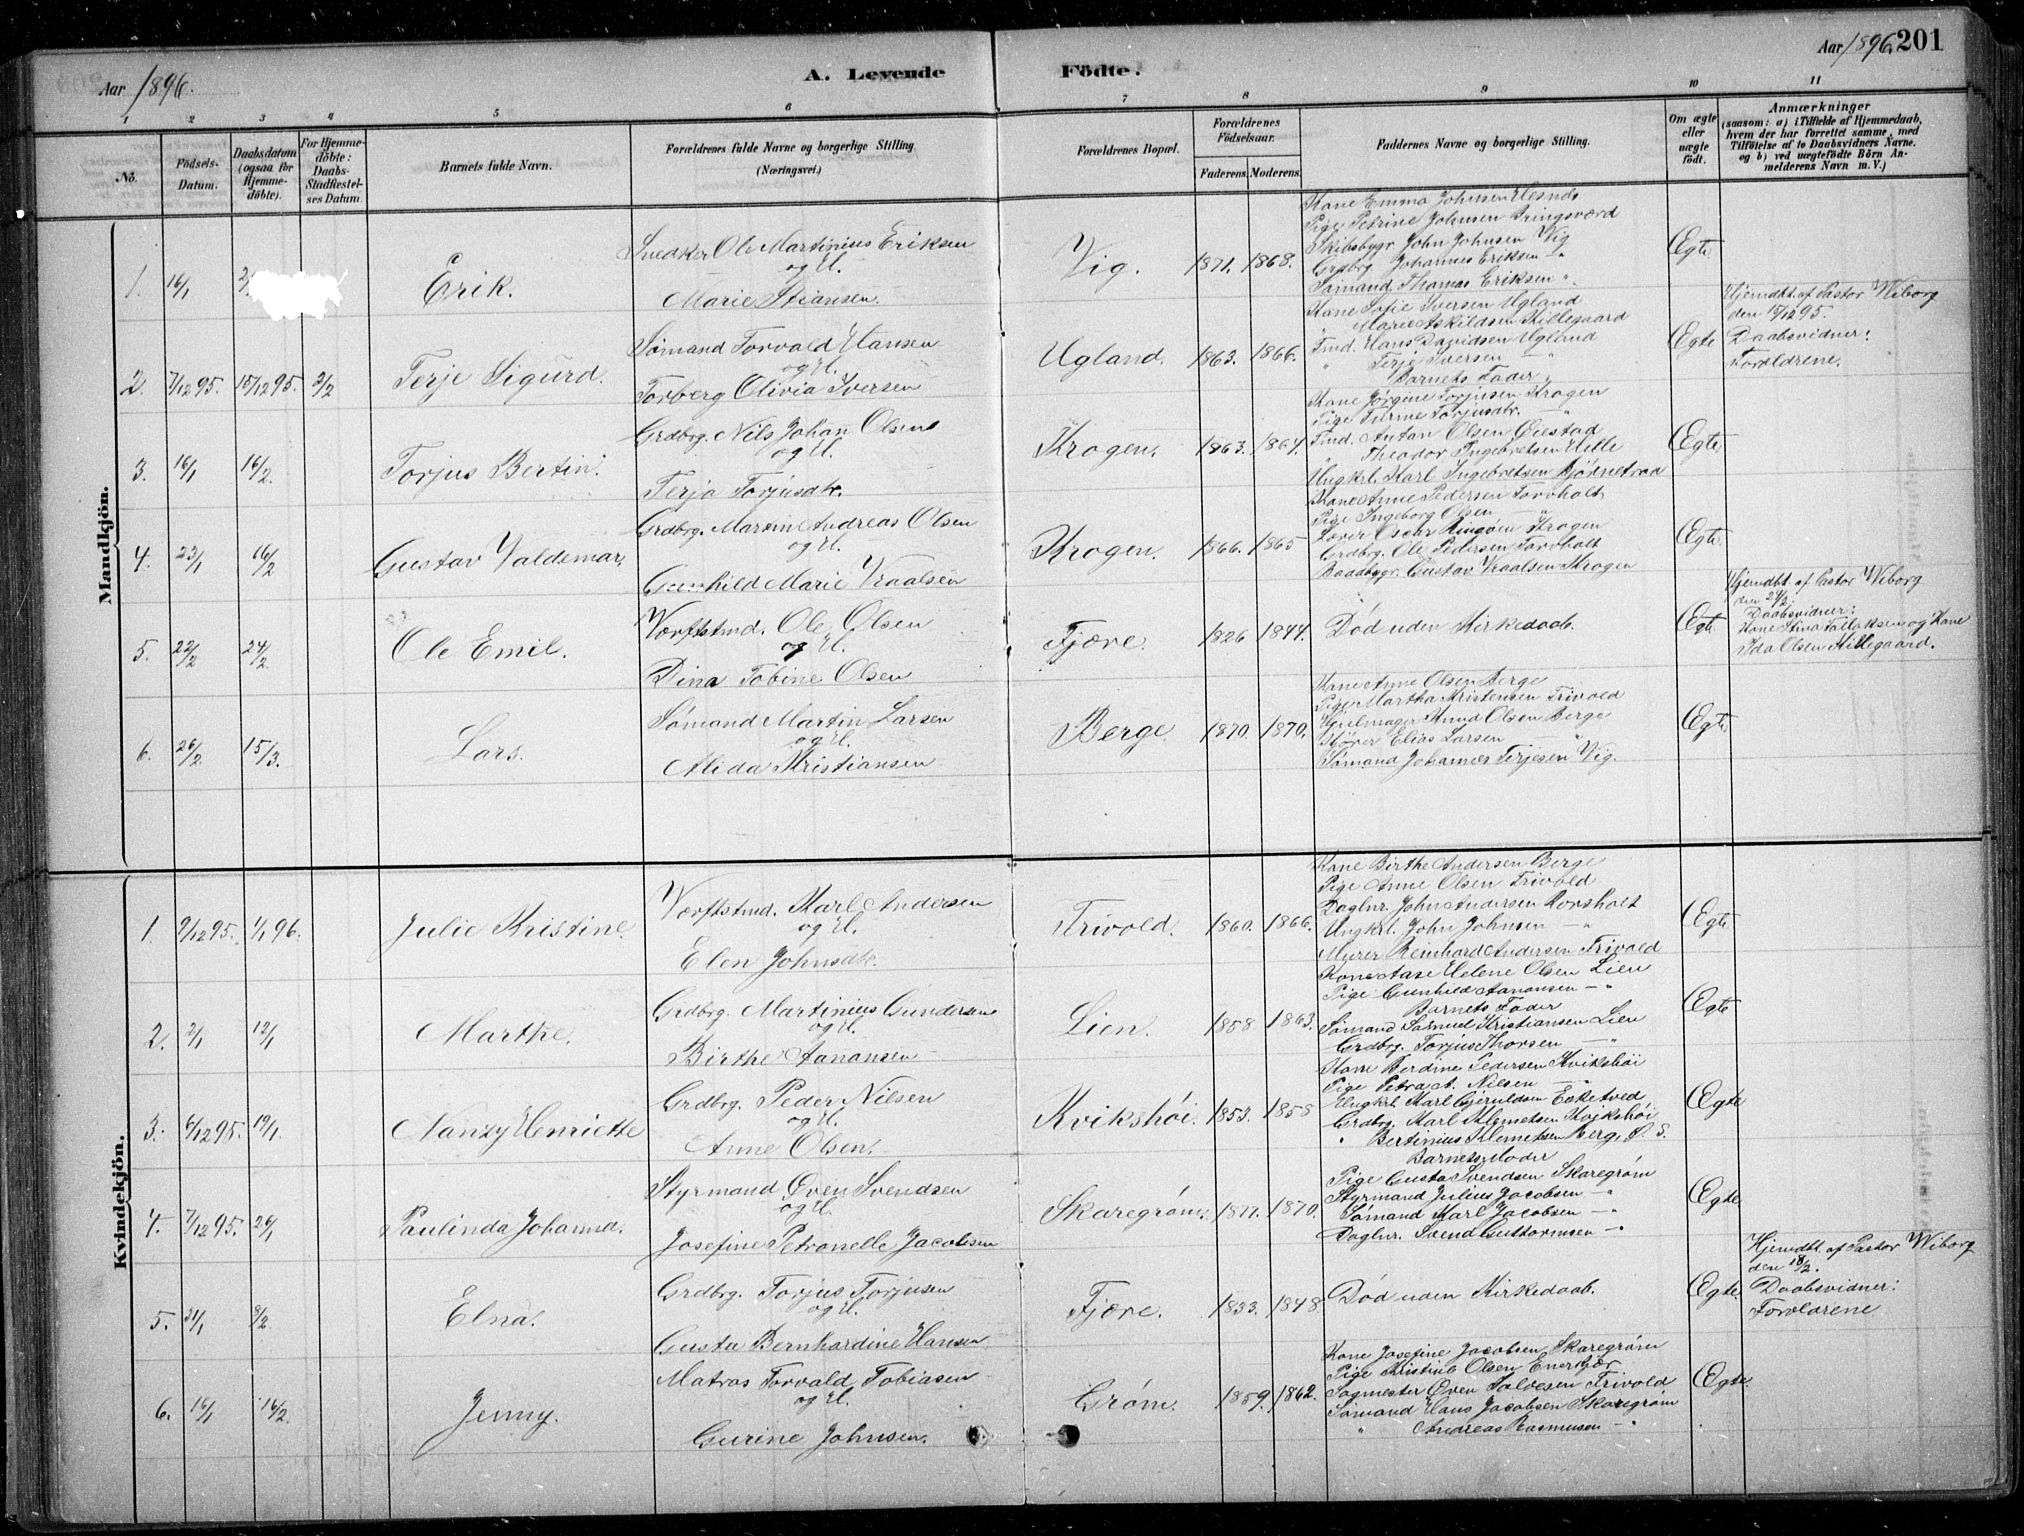 Aar 1896.
A. Levende Fødte.
Aar 1896. 201
1 2 3 4 5 6 7 8 9 10 11
No.
Fødsels-Datum.
Daabsdatum (ogsaa for Hjemmedøbte).
For Hjemmedøbte: Daabs-Stadfæstelses Datum.
Barnets fulde Navn.
Forældrenes fulde Navne og borgerlige Stilling. (Næringsvei.)
Forældrenes Bopæl.
Forældrenes Fødselsaar.
Faderens. Moderens.
Faddernes Navne og borgerlige Stilling.
Om ægte eller uægte født.
Anmærkninger
(saasom: a) i Tilfælde af Hjemmedaab, hvem der har forrettet samme, med Tilføielse af to Daabsvidners Navne. og b) ved uægtefødte Børn Anmelderens Navn m. V.)
Mandkjön.
1. 16/1 2/ Erik.
Snedker Ole Martinius Eriksen
og H.
Marie Stiansen.
Vig. 1871. 1868.
Kone Emma Johnsen Hesnds
Pige Petrine Johnsen Bringsværd
Skibsbygr. John Johnsen Vig
Grdbrg. Johannes Eriksen "
Sømand Thomas Eriksen "
Egte
2. 7/12 95. 15/12 95. 2/2 Terje Sigurd.
Sømand Torvald Hansen
og H.
Torberg Olivia Iversen
Ugland. 1863. 1866.
Kone Sofie Iversen Ugland
Marie Askildsen Hillegaard
Tmd. Hans Davidsen Ugland
" Terje Iversen "
Barnets Fader
Egte
Hjemdbt. af Pastor Wiborg
den 15/12 95.
Daabsvidner:
Forældrene.
3. 16/1 16/2. Torjus Bertin.
Grdbrg. Nils Johan Olsen
og H.
Terja Torjusdtr.
Krogen. 1863. 1864.
Kone Jørgine Torjusen Krogen
Pige Torjusdtr. "
Tmd. Antan Olsen Øiestad
" Theodor Ingebretsen Hille
Ungkrl. Karl Ingebretsen Bjørnetraa
Egte
4. 23/1 16/2 Gustav Valdemar.
Grdbrg. Martin Andreas Olsen
og H.
Gunhild Marie Vraalsen
Krogen. 1866. 1865
Kone Anne Pedersen Torvholt
Pige Ingeborg Olsen "
Oscar Ringøen Krogen
Grdbrg. Ole Pedersen Torvholt
Baadbygr. Gustav Vraalsen Krogen
Egte
5. 22/2 24/2 Ole Emil.
Værftstmd. Ole Olsen
og H.
Dina Tobine Olsen
Fjære. 1826 1844.
Død uden Kirkedaab.
Egte
Hjemdbt. af Pastor Wiborg
den 24/2.
Daabsvidner:
Kone Stina Tallaksen og Kone
Ida Olsen Hillegaard.
6. 26/2 15/3. Lars.
Sømand Martin Larsen
og H.
Alida Kristiansen
Berge 1870. 1870.
Kone Anne Olsen Berge
Pige Martha Kristensen Trivold
Hjulmager Knud Olsen Berge
Kjører Elias Larsen "
Sømand Johannes Terjesen Vig.
Egte
Kvindekjön.
1. 9/12 95. 1/1 96. Julie Kristine.
Værftstmd. Karl Andersen
og H.
Elen Johnsdtr.
Trivold. 1860. 1866.
Kone Birthe Andersen Berge
Pige Anne Olsen Trivold
Daglnr. John Andersen Rorsholt
Ungkrl. John Johnsen "
Murer Reinhard Andersen Trivold
Egte
2. 2/1 12/1 Marthe.
Grdbrg. Martinius Gundersen
og H.
Birthe Aanonsen
Lien. 1858 1863.
Kone Aase Helene Olsen Lien
Pige Gunhild Aanonsen "
Barnets Fader
Sømand Samuel Kristiansen Lien
Grdbrg. Torjus Thorsen "
Egte
3. 6/12 95. 19/1 Nanzy Henriette
Grdbrg. Peder Nilsen
og H.
Anne Olsen.
Kvikshøi. 1853. 1858
Kone Berdine Pedersen Kvikshøi
Pige Petra A. Nilsen "
Ungkrl. Karl Gjeruldsen Eeketved
Grdbrg. Karl Klemetsen Kvikshøi
" Bertinius Klemetsen Berg, Ø. S.
Egte
4. 7/12 95. 26/1 Paulinda Johanna.
Styrmand Oven Svendsen
og H.
Josefine Petronelle Jacobsen
Skaregrøm. 1871. 1870.
Barnets Moder
Pige Gusta Svendsen Skaregrøm
Styrmand Julius Jacobsen "
Sømand Karl Jacobsen "
Daglnr. Svend Guttormsen "
Egte
5. 31/1 8/2 Elna.
Grdbrg. Torjus Torjusen
og H.
Gusta Bernhardine Hansen
Fjære. 1833. 1848
Død uden Kirkedaab.
Egte.
Hjemdbt. af Pastor Wiborg
den 18/2.
Daabsvidner:
Forældrene
6. 16/1 16/2. Jenny.
Matros Torvald Tobiasen
og H.
Gurine Johnsen.
Grøm. 1859. 1862.
Kone Josefine Jacobsen Skaregrøm
Pige Kristine Olsen Enerkjær
Sagmester Oven Salvesen Trivold
Sømand Hans Jacobsen Skaregrøm
" Andreas Rasmusen "
Egte.